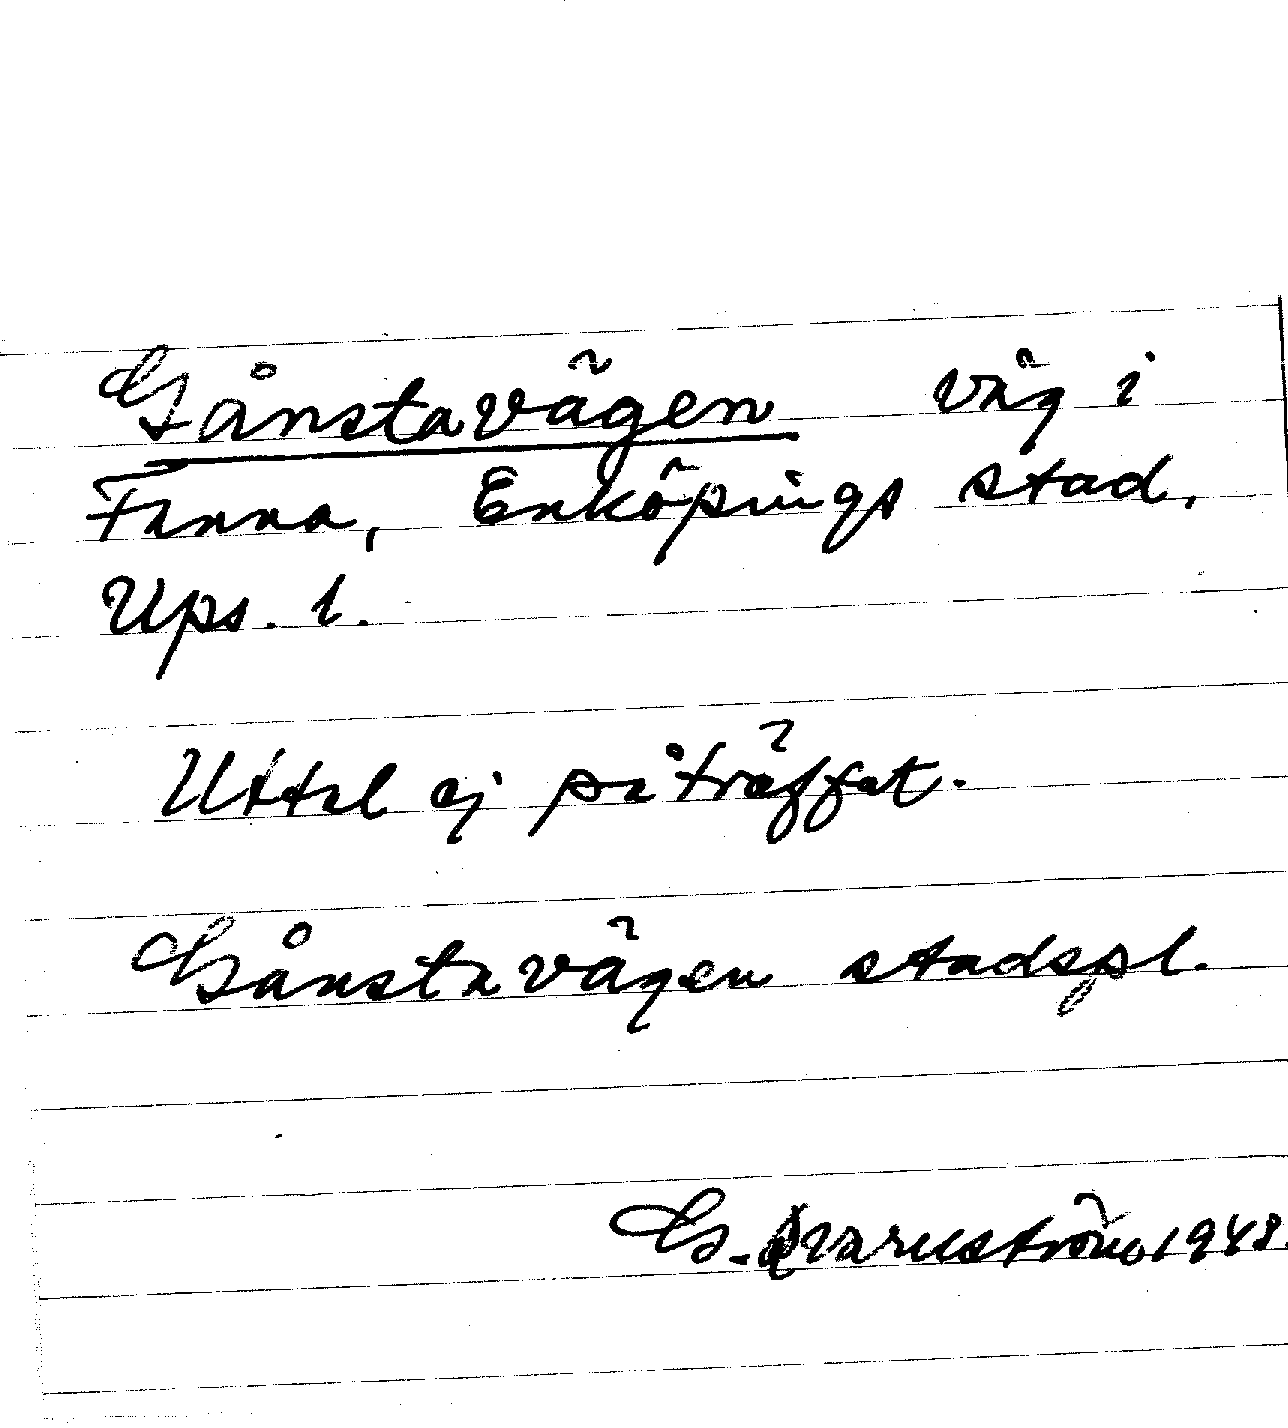 Gånstavägen väg i
Fanna, Enköpings stad,
Ups. l.
Uttal ej påträffat.
Gånstavägen stadspl.
G. Qvarnström 1948.